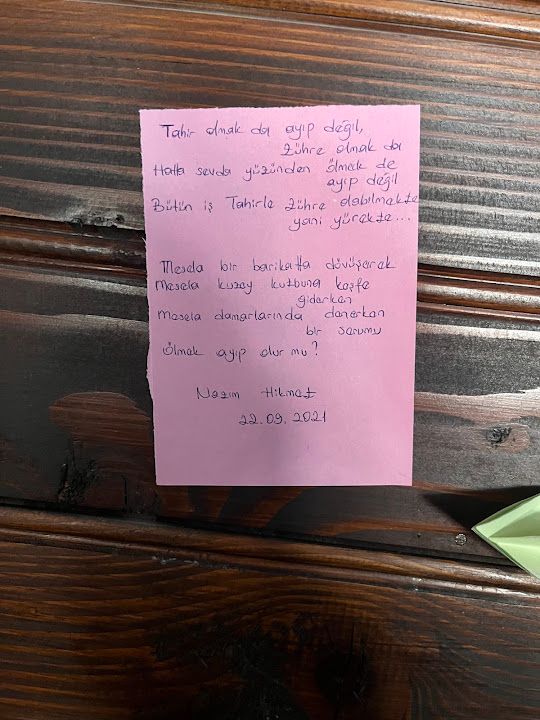 Tahir olmak da ayıp değil,
Zühre olmak da
Hatta sevda yüzünden ölmek de
ayıp değil
Bütün iş Tahirle Zühre olabilmekte
yani yürekte...
Mesela bir barikatta dövüşerek
Mesela kuzey kutbuna keşfe
giderken
Mesela damarlarında denerken
bir serumu
Ölmek ayıp olur mu?
Nazım Hikmet
22.09.2021